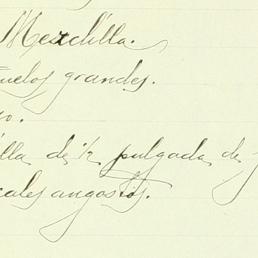 Mezclilla.
uelos grandes.
o.
lla de ½ pulgada de
cales angostos.